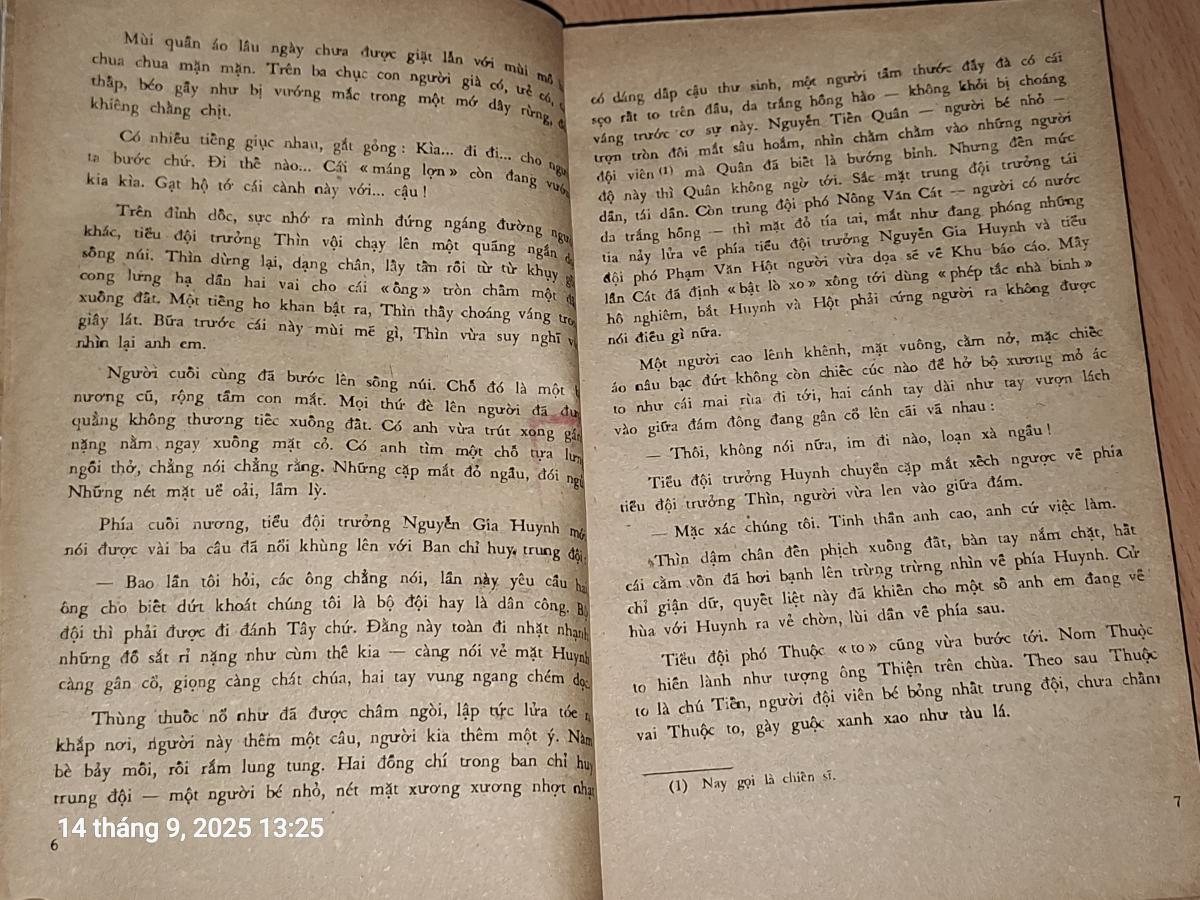 Mùi quần áo lâu ngày chưa được giặt lẫn với mùi mồ
chua chua mặn mặn. Trên ba chục con người già có, trẻ có,
thấp, béo gầy như bị vướng mắc trong một mớ dây rừng,
khiêng chằng chịt.
Có nhiều tiếng giục nhau, gắt gỏng : Kìa... đi đi... cho
ta bước chứ. Đi thế nào... Cái « máng lợn » còn đang
kia kìa. Gạt hộ tớ cái cành này với... cậu !
Trên đỉnh dốc, sực nhớ ra mình đứng ngáng đường
khác, tiểu đội trưởng Thìn vội chạy lên một quãng ngắn
sống núi. Thìn dừng lại, dạng chân, lấy tấn rồi từ từ khụy
cong lưng hạ dần hai vai cho cái « ống » tròn chấm một
xuống đất. Một tiếng ho khan bật ra, Thìn thấy choáng váng
giây lát. Bữa trước cái này mùi mẽ gì, Thìn vừa suy nghĩ
nhìn lại anh em.
Người cuối cùng đã bước lên sống núi. Chỗ đó là một
nương cũ, rộng tầm con mắt. Mọi thứ đè lên người đã
quẳng không thương tiếc xuống đất. Có anh vừa trút xong
nặng nằm ngay xuống mặt cỏ. Có anh tìm một chỗ tựa
ngồi thở, chẳng nói chẳng rằng. Những cặp mắt đỏ ngầu, đói
Những nét mặt uể oải, lầm lỳ.
Phía cuối nương, tiểu đội trưởng Nguyễn Gia Huynh
nói được vài ba câu đã nổi khùng lên với Ban chỉ huy trung đội:
— Bao lần tôi hỏi, các ông chẳng nói, lần này yêu cầu
ông cho biết dứt khoát chúng tôi là bộ đội hay là dân công.
đội thì phải được đi đánh Tây chứ. Đằng này toàn đi nhặt nhạnh
những đồ sắt rỉ nặng như cùm thế kia — càng nói vẻ mặt Huynh
càng gân cổ, giọng càng chát chúa, hai tay vung ngang chém
Thùng thuốc nổ như đã được châm ngòi, lập tức lửa tóe
khắp nơi, người này thêm một câu, người kia thêm một ý. Năm
bè bảy mối, rối rắm lung tung. Hai đồng chí trong ban chỉ huy
trung đội — một người bé nhỏ, nét mặt xương xương nhợt nhạt
6
có dáng dấp cậu thư sinh, một người tầm thước đẫy đà có cái
sẹo rất to trên đầu, da trắng hồng hào — không khỏi bị choáng
váng trước cơ sự này. Nguyễn Tiến Quân — người bé nhỏ —
trợn tròn đôi mắt sâu hoắm, nhìn chằm chằm vào những người
đội viên (1) mà Quân đã biết là bướng bỉnh. Nhưng đến mức
độ này thì Quân không ngờ tới. Sắc mặt trung đội trưởng tái
dần, tái dần. Còn trung đội phó Nông Văn Cát — người có nước
da trắng hồng — thì mặt đỏ tía tai, mắt như đang phóng những
tia nảy lửa về phía tiểu đội trưởng Nguyễn Gia Huynh và tiểu
đội phó Phạm Văn Hột người vừa dọa sẽ về Khu báo cáo. Mấy
lần Cát đã định « bật lò xo » xông tới dùng « phép tắc nhà binh »
hô nghiêm, bắt Huynh và Hột phải cứng người ra không được
nói điều gì nữa.
Một người cao lênh khênh, mặt vuông, cằm nở, mặc chiếc
áo nâu bạc đứt không còn chiếc cúc nào để hở bộ xương mỏ ác
to như cái mai rùa đi tới, hai cánh tay dài như tay vượn lách
vào giữa đám đông đang gân cổ lên cãi vã nhau :
— Thôi, không nói nữa, im đi nào, loạn xà ngầu !
Tiểu đội trưởng Huynh chuyển cặp mắt xếch ngược về phía
tiểu đội trưởng Thìn, người vừa len vào giữa đám.
— Mặc xác chúng tôi. Tinh thần anh cao, anh cứ việc làm.
Thìn dậm chân đến phịch xuống đất, bàn tay nắm chặt, hất
cái cằm vốn đã hơi bạnh lên trừng trừng nhìn về phía Huynh. Cử
chỉ giận dữ, quyết liệt này đã khiến cho một số anh em đang về
hùa với Huynh ra vẻ chờn, lùi dần về phía sau.
Tiểu đội phó Thuộc « to » cũng vừa bước tới. Nom Thuộc
to hiền lành như tượng ông Thiện trên chùa. Theo sau Thuộc
to là chú Tiến, người đội viên bé bỏng nhất trung đội, chưa chấm
vai Thuộc to, gày guộc xanh xao như tàu lá.
(1) Nay gọi là chiến sĩ.
7
14 tháng 9, 2025 13:25